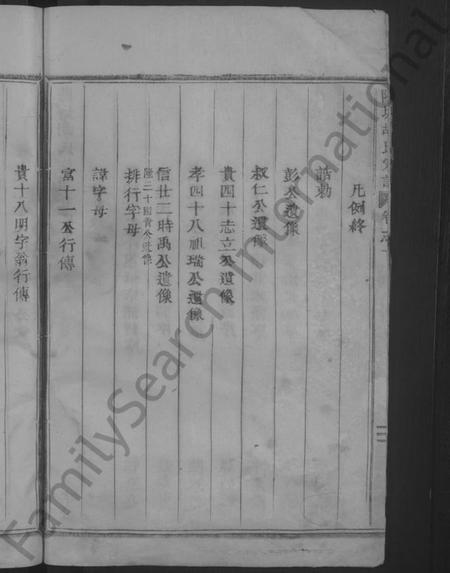 凡例終
誥勅
彭公遺像
叔仁公遺像
貴四十志立公遺像
孝四十八祖瑞公遺像
信廿二時禹公遺像
排行字母
諱字母
宮十一公行傳
貴十八明字翁行傳
胡氏宗譜
三
FamilySearch International